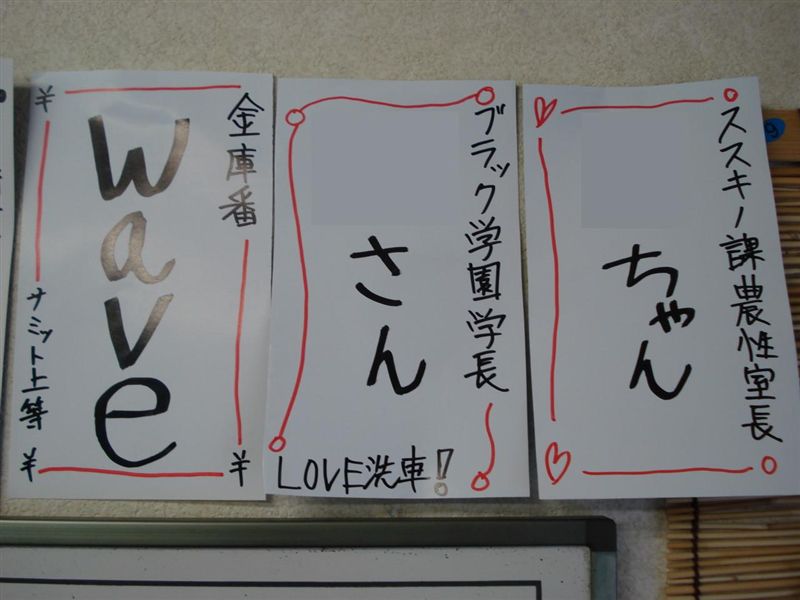 金庫番
wave
サミット上等
¥
¥
¥
ブラック学園学長
さん
LOVE洗車!!
ススキノ課農性室長
ちゃん
9